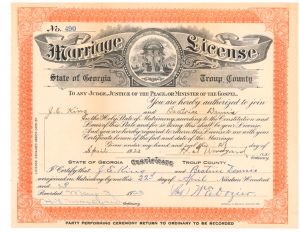 No. 490
Marriage License
State of Georgia Troup County
TO ANY JUDGE, JUSTICE OF THE PEACE, OR MINISTER OF THE GOSPEL.
You are hereby authorized to join
J. E. King and Dennis
in the Holy State of Matrimony according to the Constitution and
Laws of this State and for so doing this shall be your
And you are hereby required to return this License to me with your
Certificate hereon of the fact and date of the Marriage.
Given under my hand and this
April
STATE OF GEORGIA Certificate TROUP COUNTY
I Certify that J. E. King and Dennis
were joined in Matrimony by me this 22 day of April Nineteen Hundred
and
Recorded May
PARTY PERFORMING CEREMONY RETURN TO ORDINARY TO BE RECORDED